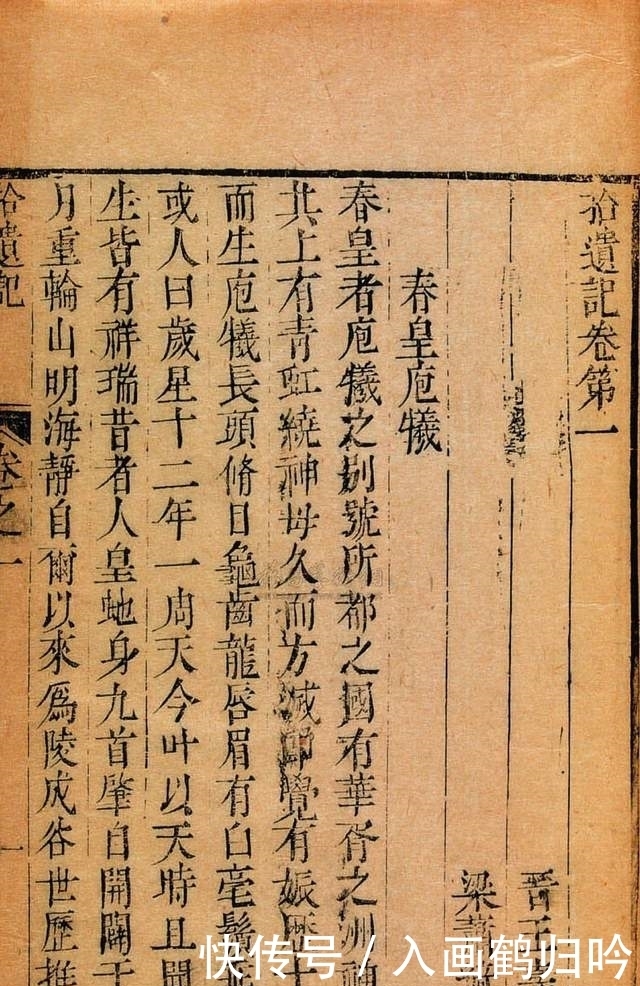 拾遺記卷第一
晉王
梁蕭
春皇庖犧
春皇者庖犧之別號所都之國有華胥之洲神
其上有青虹繞神母久而方滅即覺有娠歷十
而生庖犧長頭脩目龜齒龍唇眉有白毫鬚垂
或人曰歲星十二年一周天今叶以天時且聞
生皆有祥瑞昔者人皇虵身九首肇自開闢于
月重輪山明海靜自爾以來爲陵成谷世歷推
拾遺記
卷之一
一
快传号 / 入画鹤归吟